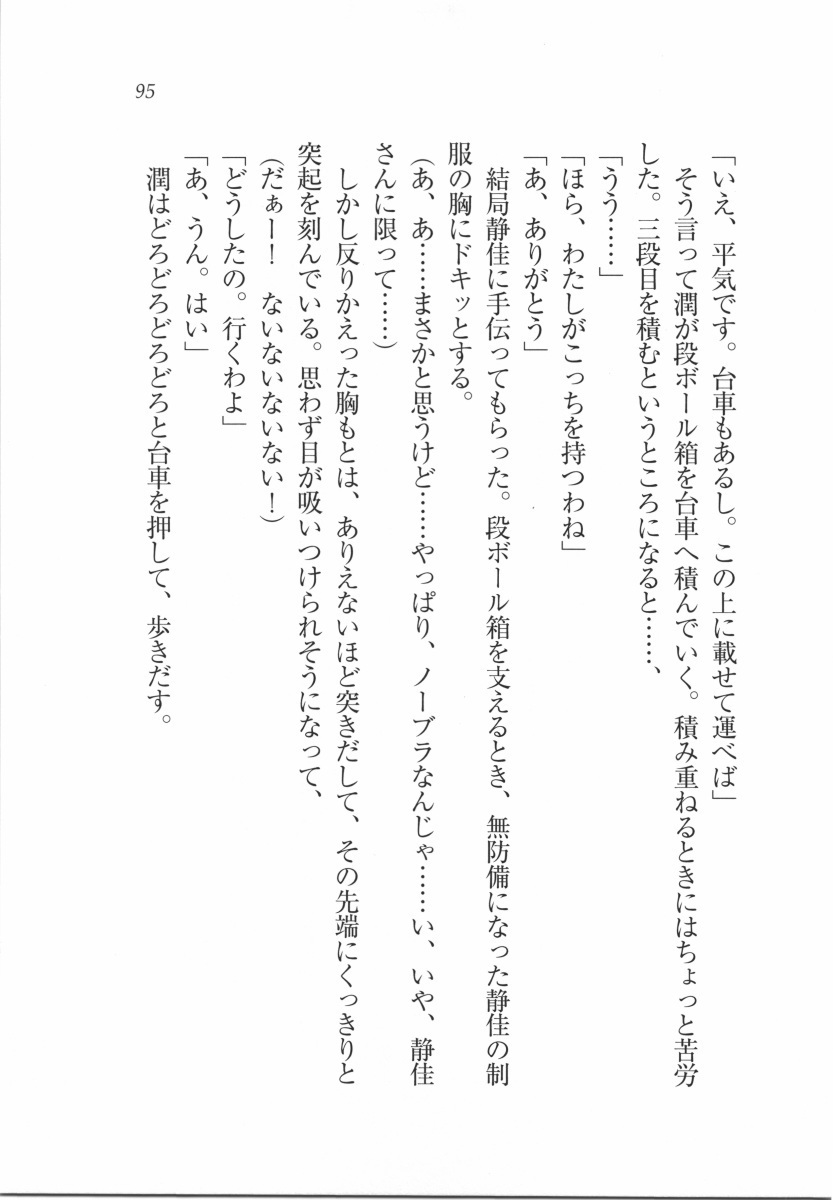 「いえ、平気です。台車もあるし。この上に載せて運べば」
　そう言って潤が段ボール箱を台車へ積んでいく。積み重ねるときにはちょっと苦労
した。三段目を積むというところになると……、
「うう……」
「ほら、わたしがこっちを持つわね」
「あ、ありがとう」
　結局静佳に手伝ってもらった。段ボール箱を支えるとき、無防備になった静佳の制
服の胸にドキッとする。
（あ、あ……まさかと思うけど……やっぱり、ノーブラなんじゃ……い、いや、静佳
さんに限って……）
　しかし反りかえった胸もとは、ありえないほど突きだして、その先端にくっきりと
突起を刻んでいる。思わず目が吸いつけられそうになって、
（だぁー！　ないないないない！）
「どうしたの。行くわよ」
「あ、うん。はい」
　潤はどろどろどろどろと台車を押して、歩きだす。
95